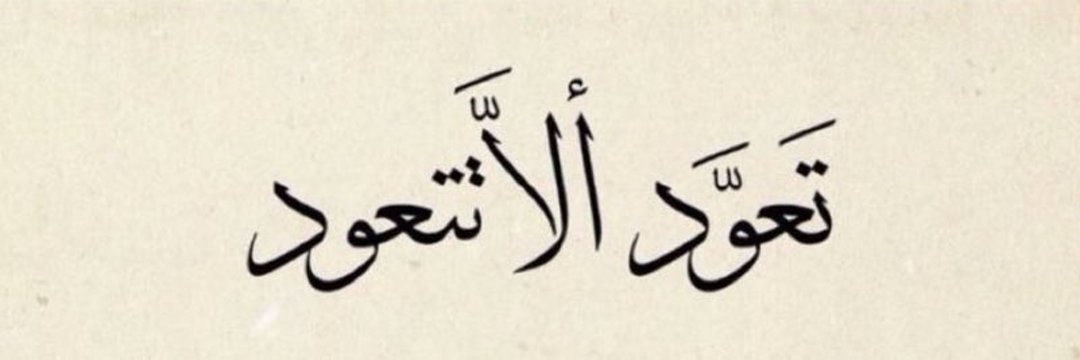 تَعوَّد ألاَّ تتعود